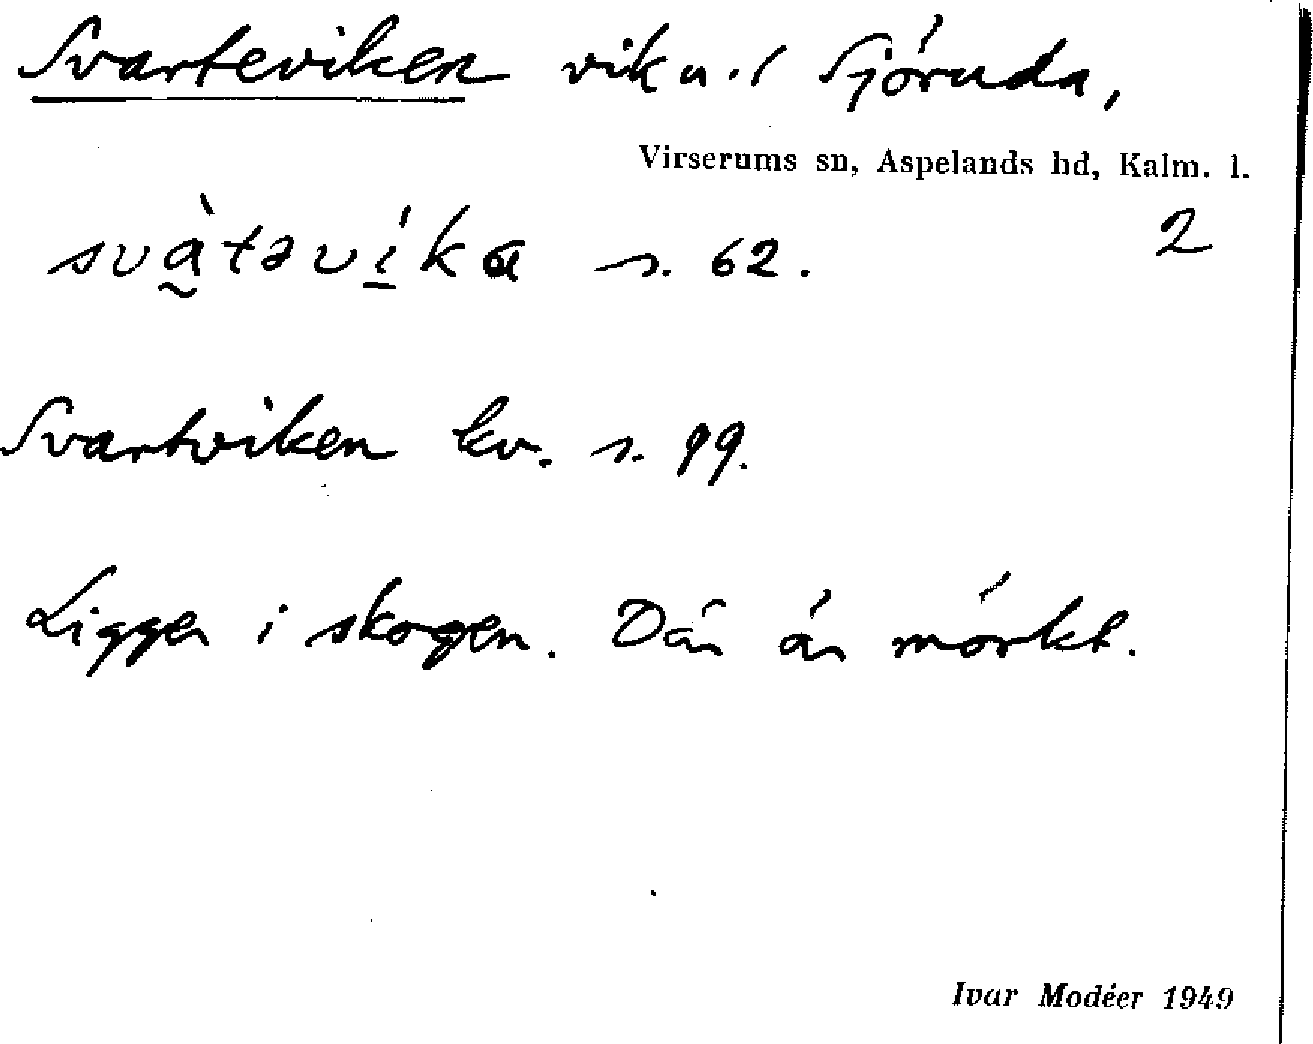 Svarteviken vik u. Sjöruda,
Virserums sn, Aspelands hd, Kalm. l.
svàtəvíka s. 62. 2
Svartviken kv. s. 99.
Ligger i skogen. Där är mörkt.
Ivar Modéer 1949